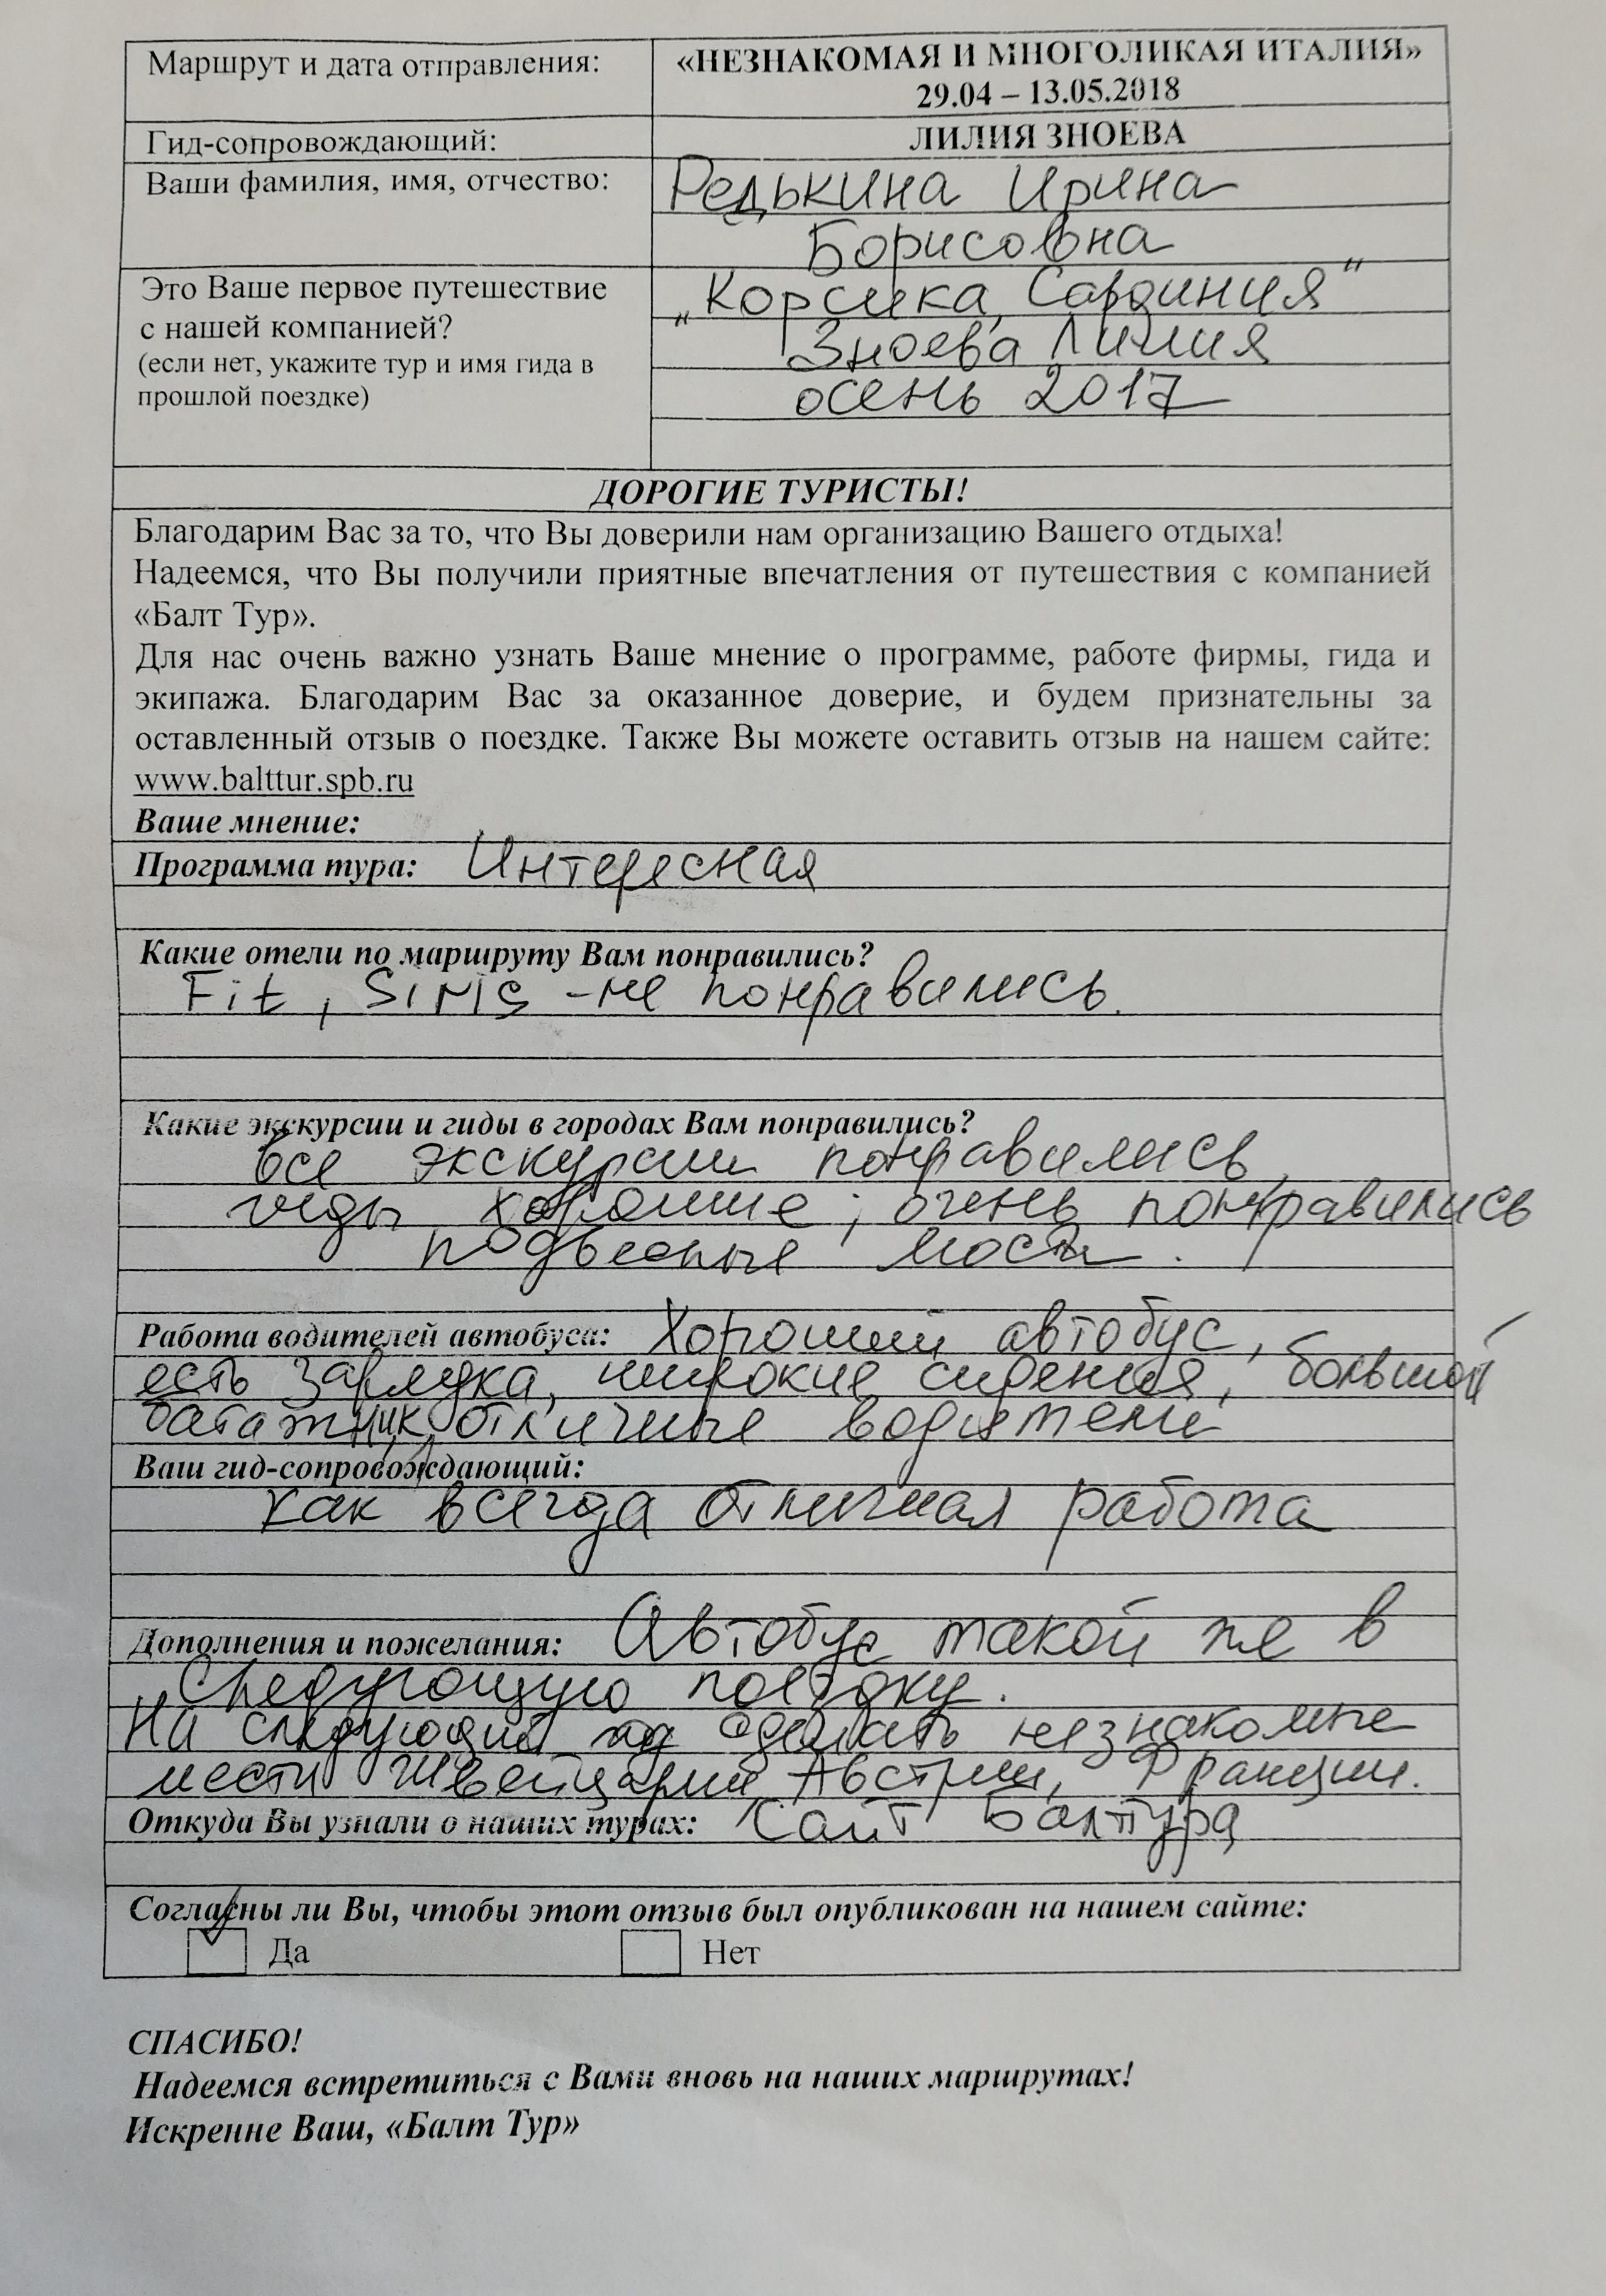 Маршрут и дата отправления:
«НЕЗНАКОМАЯ И МНОГОЛИКАЯ ИТАЛИЯ»
29.04 – 13.05.2018
Гид-сопровождающий:
ЛИЛИЯ ЗНОЕВА
Ваши фамилия, имя, отчество:
Редькина Ирина
Борисовна
Это Ваше первое путешествие
с нашей компанией?
(если нет, укажите тур и имя гида в
прошлой поездке)
„Корсика, Сардиния“
Зноева Лилия
осень 2017
ДОРОГИЕ ТУРИСТЫ!
Благодарим Вас за то, что Вы доверили нам организацию Вашего отдыха!
Надеемся, что Вы получили приятные впечатления от путешествия с компанией
«Балт Тур».
Для нас очень важно узнать Ваше мнение о программе, работе фирмы, гида и
экипажа. Благодарим Вас за оказанное доверие, и будем признательны за
оставленный отзыв о поездке. Также Вы можете оставить отзыв на нашем сайте:
www.balttur.spb.ru
Ваше мнение:
Программа тура: Интересная
Какие отели по маршруту Вам понравились?
Fit, - не понравились.
Какие экскурсии и гиды в городах Вам понравились?
все экскурсии понравились,
гиды хорошие; очень понравились
подвесные мосты.
Работа водителей автобуса: Хороший автобус,
есть зарядка, широкие сиденья, большой
багажник, отличные водители
Ваш гид-сопровождающий:
как всегда отличная работа
Дополнения и пожелания: Автобус такой же в
следующую поездку.
На следующий год сделать незнакомые
места Швейцарии, Австрии, Франции.
Откуда Вы узнали о наших турах: Сайт Балттура
Согласны ли Вы, чтобы этот отзыв был опубликован на нашем сайте:
Да Нет
СПАСИБО!
Надеемся встретиться с Вами вновь на наших маршрутах!
Искренне Ваш, «Балт Тур»